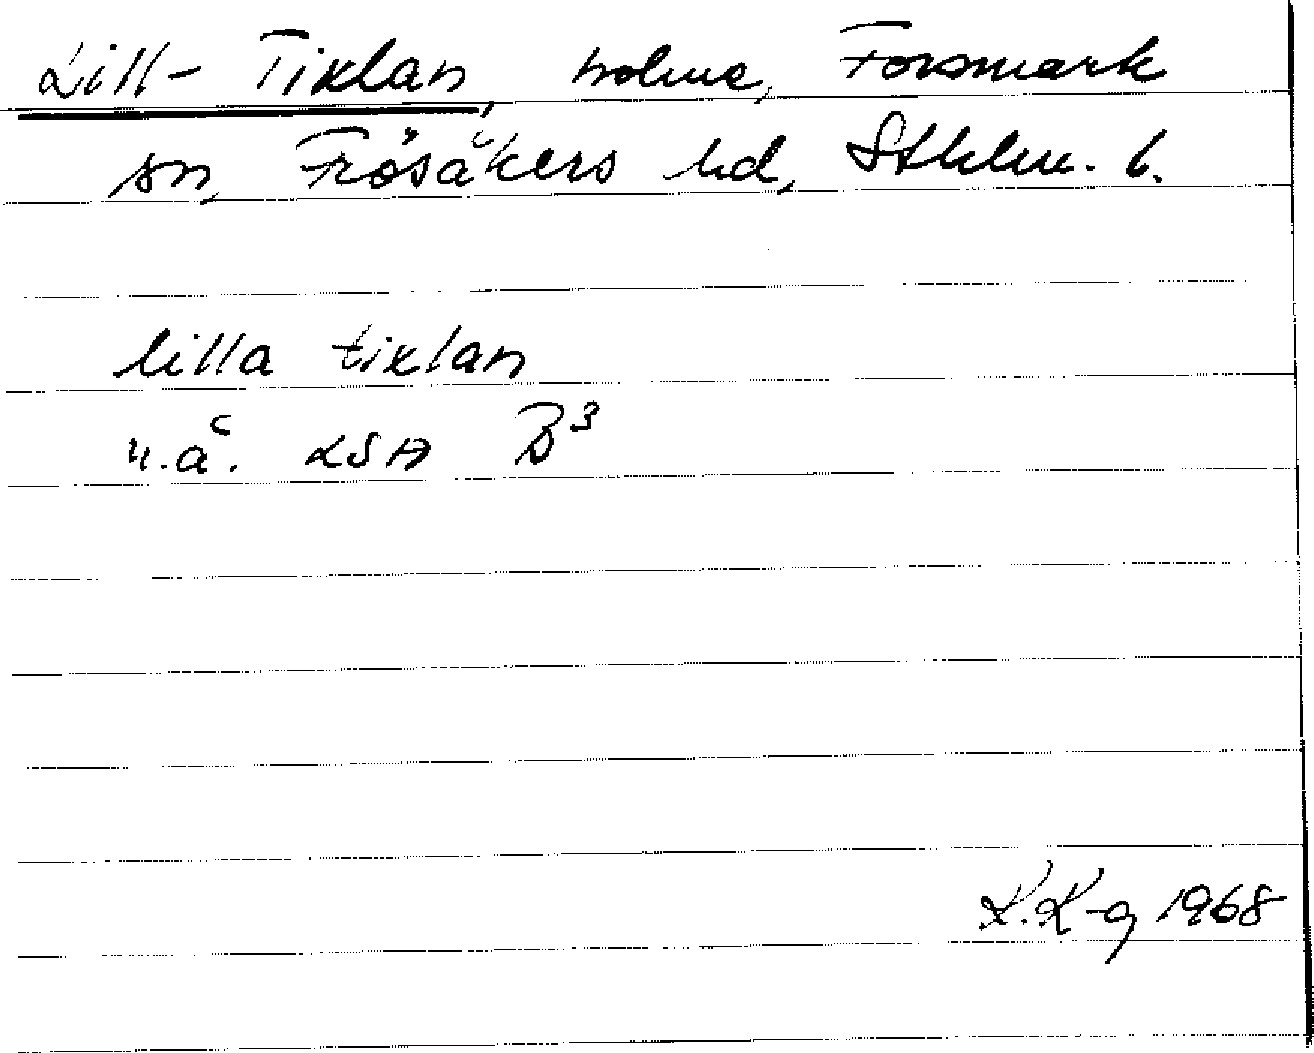 Lill-Tixlan, holme, Forsmark
sn, Frösåkers hd, Sthlm. l.
lilla tixlan
u.å. LSA B³
K.K-g 1968